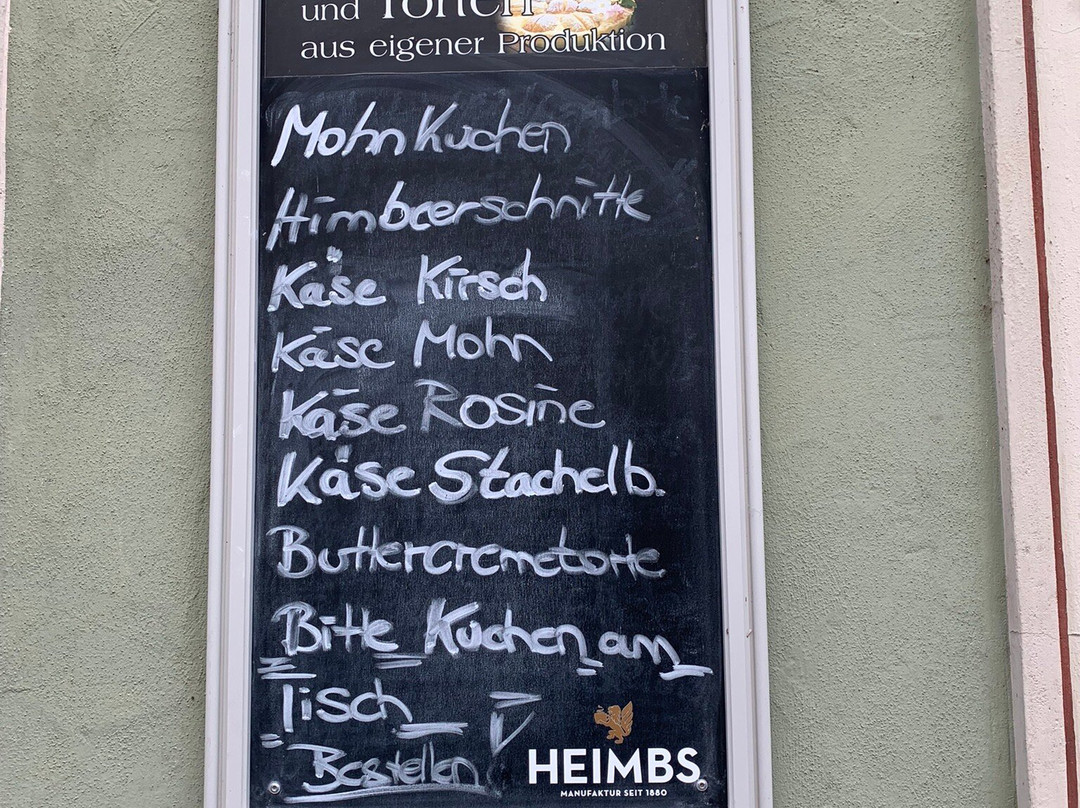 und Torten
aus eigener Produktion
Mohn Kuchen
Himbeerschnitte
Käse Kirsch
Käse Mohn
Käse Rosine
Käse Stachelb.
Buttercremetorte
Bitte Kuchen am
Tisch
Bestellen
HEIMBS
MANUFAKTUR SEIT 1880